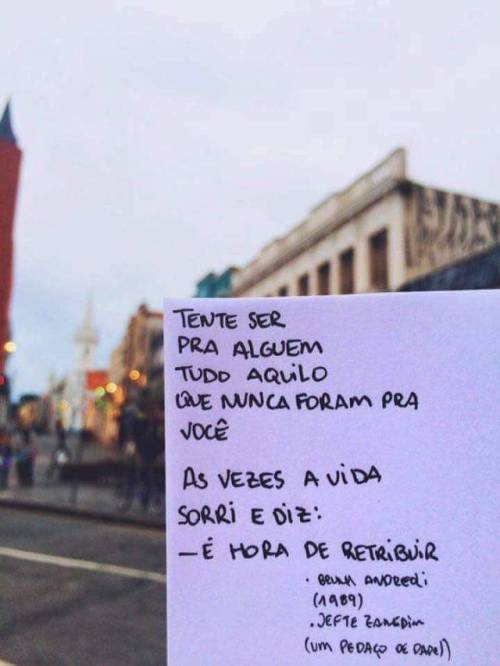 TENTE SER
PRA ALGUEM
TUDO AQUILO
QUE NUNCA FORAM PRA
VOCÊ
AS VEZES A VIDA
SORRI E DIZ:
— É HORA DE RETRIBUIR
(1989)
(UM PEDAÇO DE PAPEL)